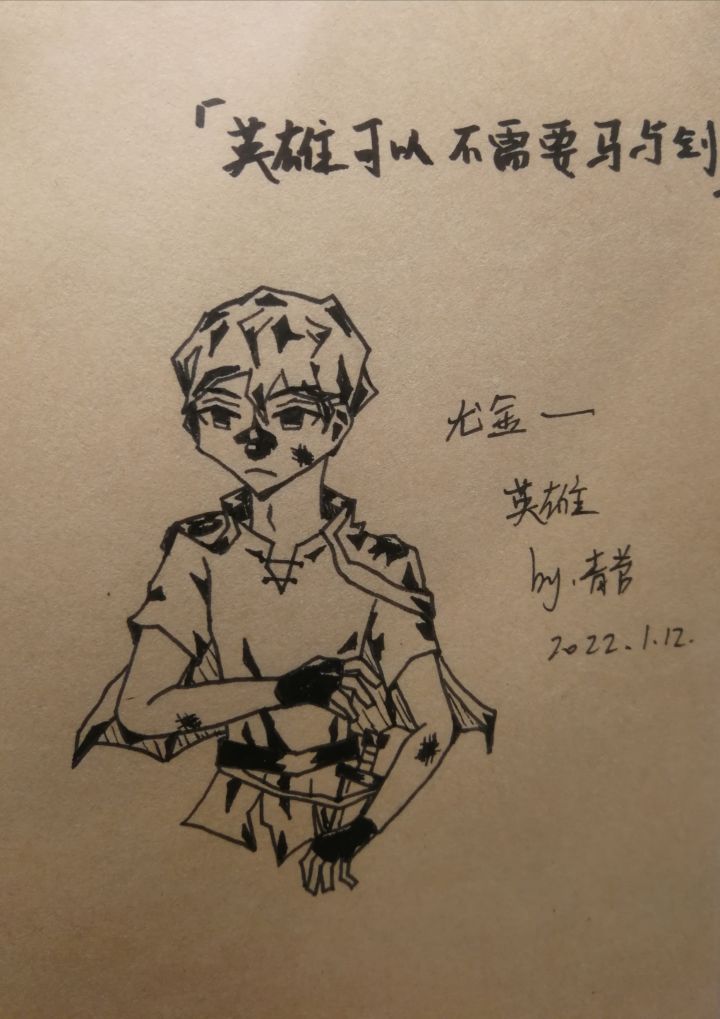 「英雄可以不需要马与剑」
尤金一
英雄
by.青营
2022.1.12.